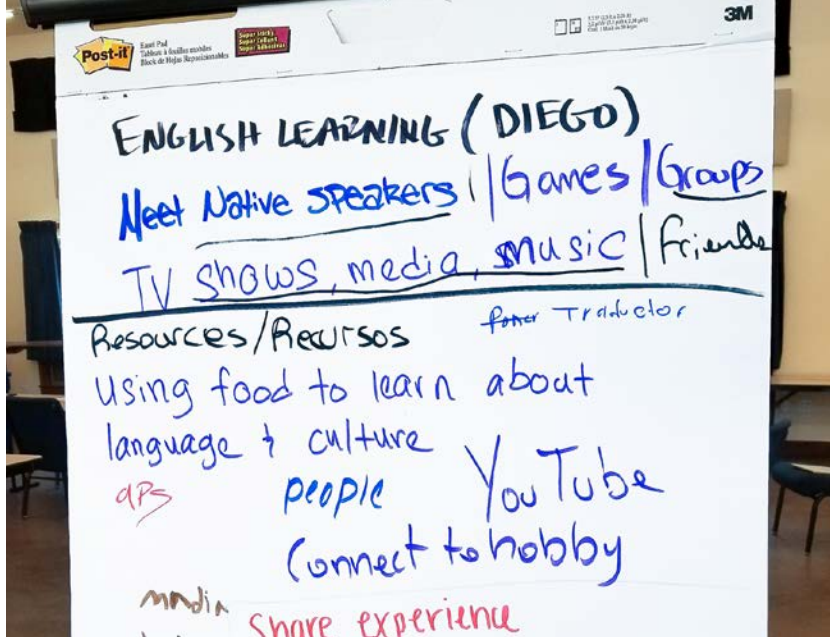 Post-it
Easel Pad
Tableau à feuilles mobiles
Block de Hojas Reposicionables
Super Sticky
Super Collant
Super Adhesivas
3M
ENGLISH LEARNING (DIEGO)
Meet Native speakers | Games | Groups
TV shows, media, music | friends
Resources/Recursos
Traductor
using food to learn about
language & culture
aps
people
YouTube
Connect to hobby
media
share experience